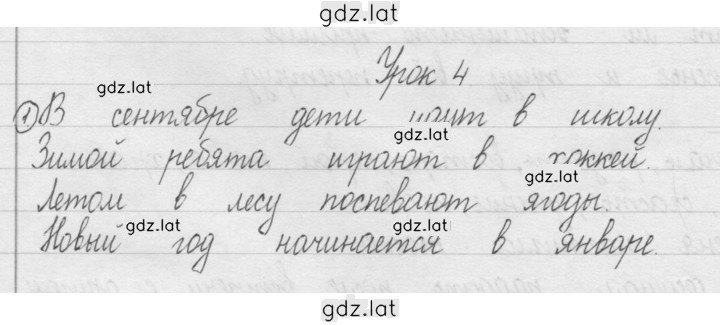 gdz.lat
Урок 4
gdz.lat
① В сентябре дети идут в школу.
gdz.lat
Зимой ребята играют в хоккей.
gdz.lat
Летом в лесу поспевают ягоды.
gdz.lat gdz.lat gdz.lat
Новый год начинается в январе.
gdz.lat